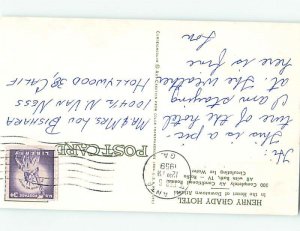 Hi:
This is a pic-
ture of the hotel
I am staying
at. The weather
here is fine
Lou
POSTCARD
Mr & Mrs. Lou Bishara
1004½ N. Van Ness
Hollywood 38, Calif
HENRY GRADY HOTEL
In the Heart of Downtown Atlanta
Completely Air Conditioned Rooms
All with Bath, TV, Radio
Circulating Ice Water
GA.
1959
LIBERTY
3¢